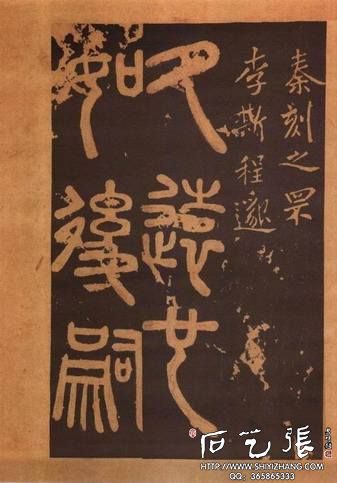 秦刻之罘
李斯程邈
久遠也
如後嗣
石艺張
HTTP://WWW.SHIYIZHANG.COM
QQ: 365865333